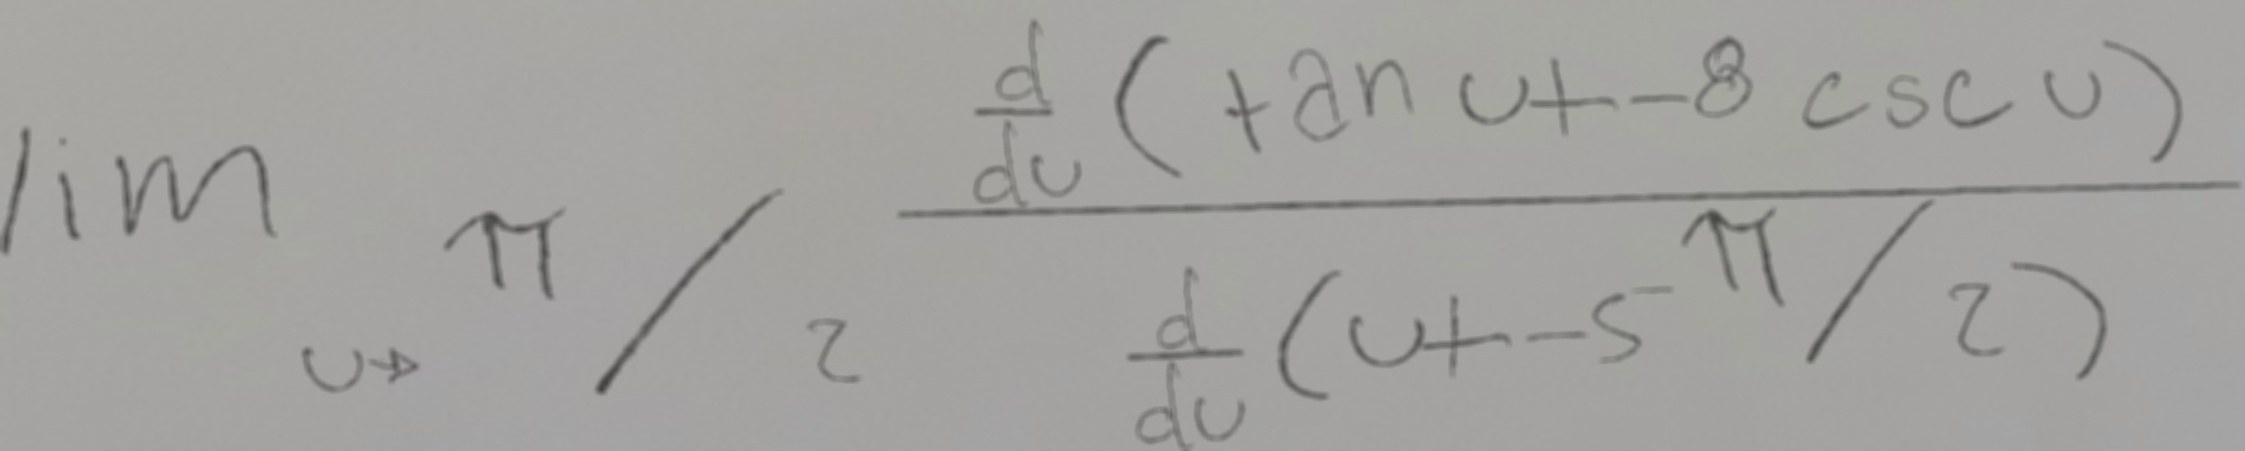 \lim_{u \to \pi/2} \frac{\frac{d}{du}(\tan u + -8 \csc u)}{\frac{d}{du}(u + -5 \pi/2)}